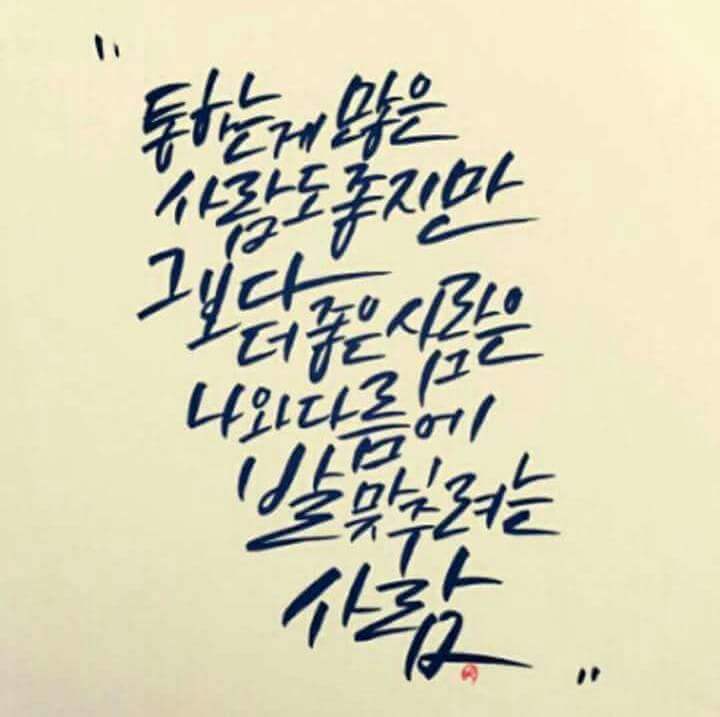 "
통하는게 많은
사람도 좋지만
그보다
더 좋은 사람은
나와 다름에
발 맞추려는
사람
"